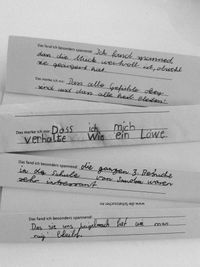 Das fand ich besonders spannend: Ich fand spannend
dan die Musik wertvoll ist, obwohl
sie geärgert hat.
Das merke ich mir: Dass alle Gefühle
send und dan alle heil bleiben!
Das merke ich mir: Dass ich mich
verhalte wie ein Löwe.
Das fand ich besonders spannend: die ganzen 3. Besuche
in der Schule von waren
sehr interessant
Das fand ich besonders spannend:
Das sie uns beigebracht hat wie man
ruig bleibt.